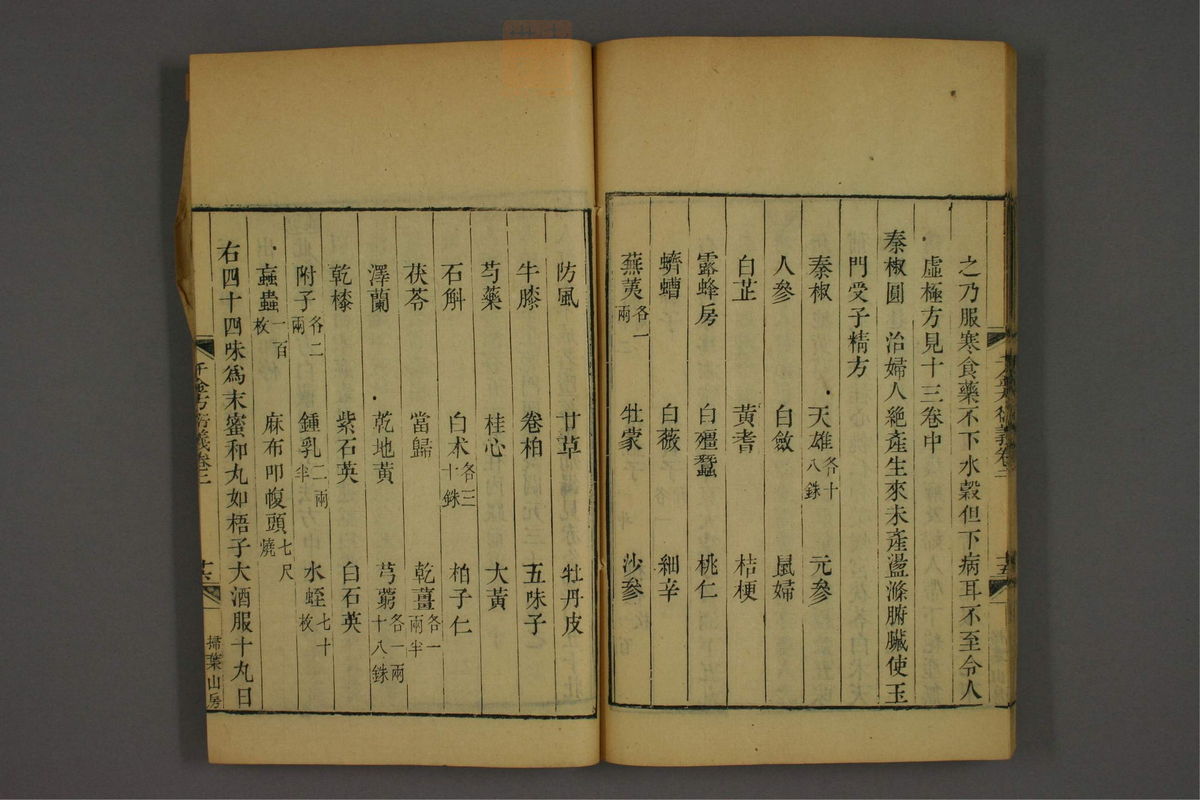 之乃服寒食藥不下水穀但下病耳不至令人
虛極方見十三卷中
秦椒圓 治婦人絶產生來未產盪滌腑臟使玉
門受子精方
秦椒 天雄各十八銖 元參
人參 白斂 鼠婦
白芷 黃耆 桔梗
露蜂房 白殭蠶 桃仁
蠐螬 白薇 細辛
蕪荑各一兩 牡蒙 沙參
防風 甘草 牡丹皮
牛膝 卷柏 五味子
芍藥 桂心 大黃
石斛 白术各三十銖 柏子仁
茯苓 當歸 乾薑各一兩半
澤蘭 乾地黃 芎藭各一兩十八銖
乾㯃 紫石英 白石英
附子各二兩 鍾乳二兩半 水蛭七十枚
䖟蟲一百枚 麻布叩㡋頭七尺燒
右四十四味爲末蜜和丸如梧子大酒服十丸日
千金方衍義卷二 十六 掃葉山房